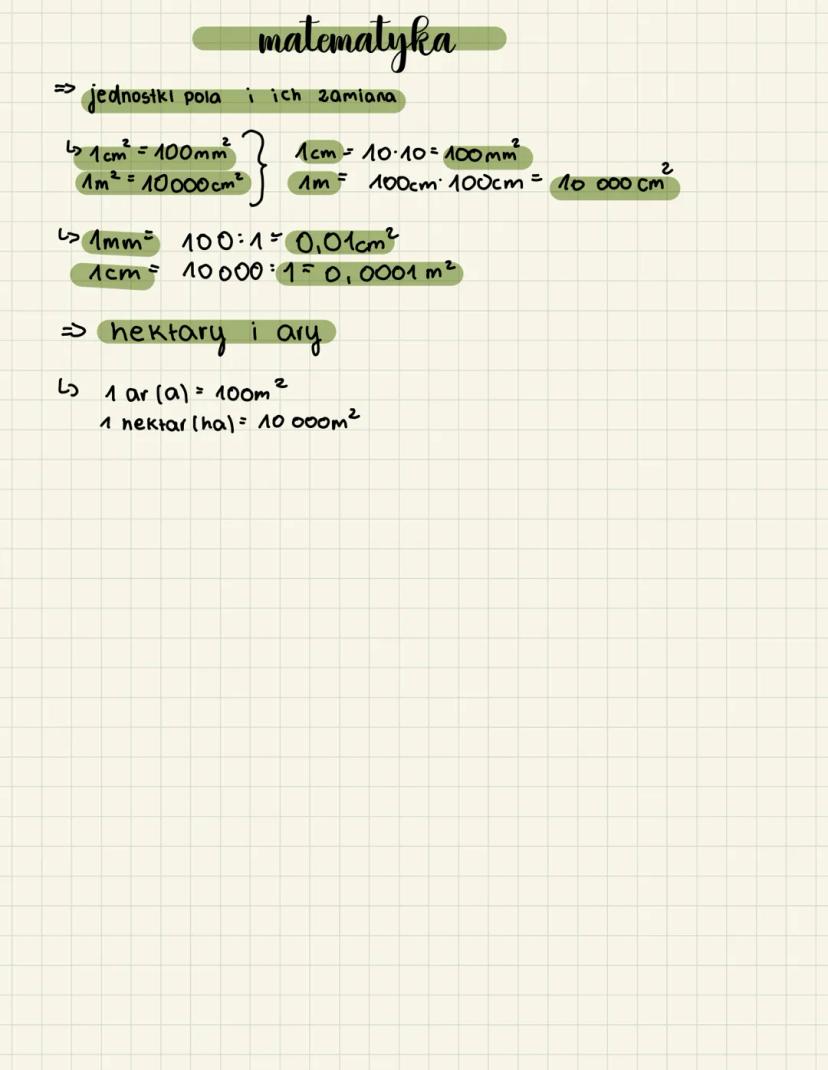 matematyka
⇒ jednostki pola i ich zamiana
↳ 1cm² = 100mm² } 1cm = 10·10 = 100mm²
1m² = 10000cm² } 1m = 100cm · 100cm = 10 000 cm²
↳ 1mm = 100:1 = 0,01cm²
1cm = 10 000:1 = 0,0001 m²
⇒ hektary i ary
↳ 1 ar (a) = 100m²
1 hektar (ha) = 10 000m²